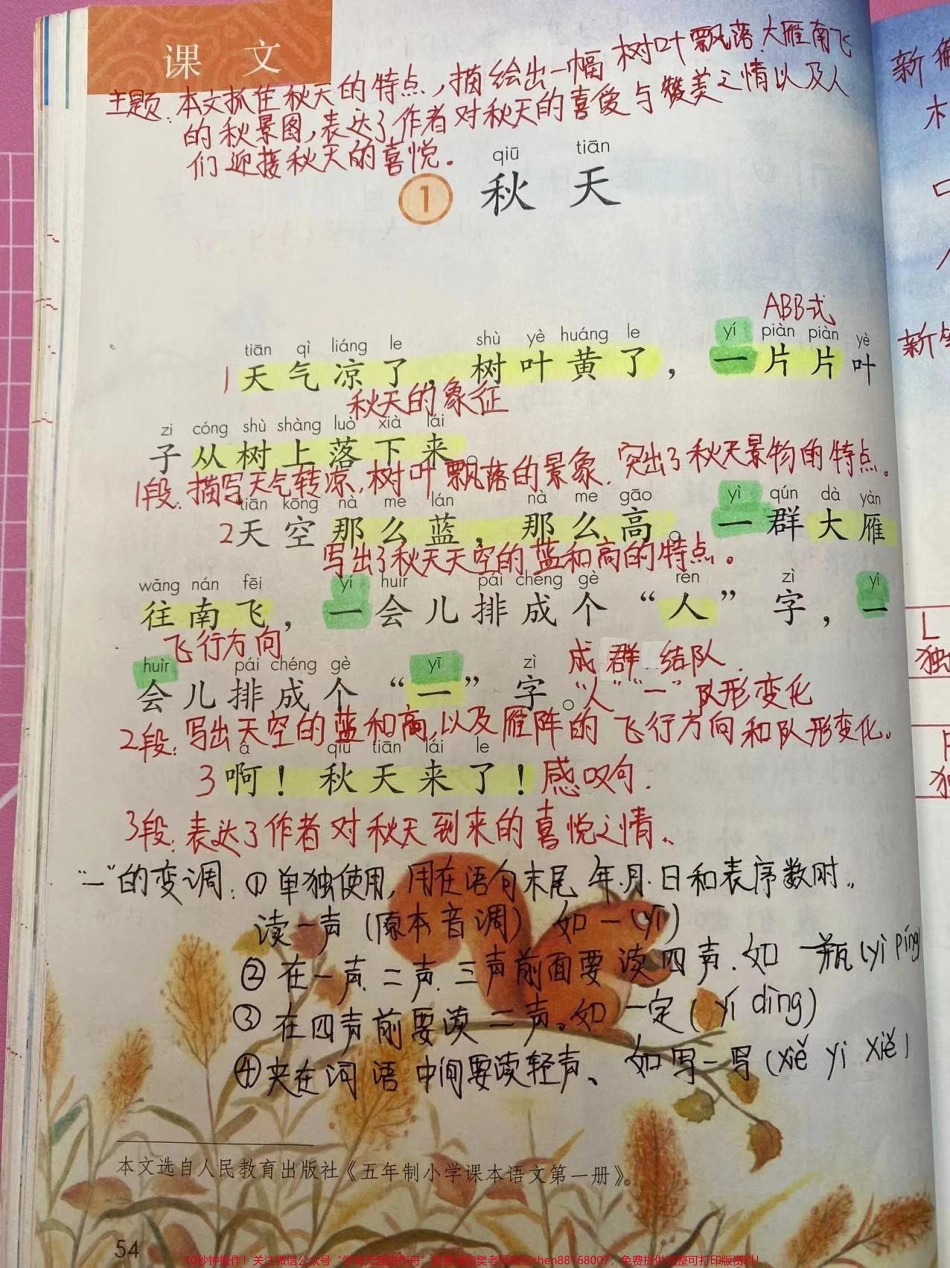 课 文
主题：本文抓住秋天的特点，描绘出一幅树叶飘落、大雁南飞
的秋景图，表达了作者对秋天的喜爱与赞美之情以及人
们迎接秋天的喜悦。
qiū tiān
1 秋 天
ABB式
tiān qì liáng le shù yè huáng le yí piàn piàn yè
1 天气凉了，树叶黄了，一片片叶
秋天的象征
zi cóng shù shàng luò xià lái
子从树上落下来。
1段：描写天气转凉，树叶飘落的景象．突出了秋天景物的特点。
tiān kōng nà me lán nà me gāo yì qún dà yàn
2 天空那么蓝，那么高。一群大雁
写出了秋天天空的蓝和高的特点。
wǎng nán fēi yí huìr pái chéng gè rén zì yí
往南飞，一会儿排成个“人”字，一
飞行方向
成群结队．
huìr pái chéng gè yī zì
会儿排成个“一”字。
“人”“一”队形变化
2段：写出天空的蓝和高，以及雁阵的飞行方向和队形变化。
à qiū tiān lái le
3 啊！秋天来了！感叹句．
3段：表达了作者对秋天到来的喜悦之情。
“一”的变调：① 单独使用，用在语句末尾 年．月．日和表序数时．
读一声（原本音调） 如一（yī）
② 在一声．二声．三声前面要读四声．如 一瓶（yì píng
③ 在四声前要读二声。如 一定（yí dìng）
④ 夹在词语中间要读轻声、 如写一写（xiě yi xiě）
本文选自人民教育出版社《五年制小学课本语文第一册》。
54